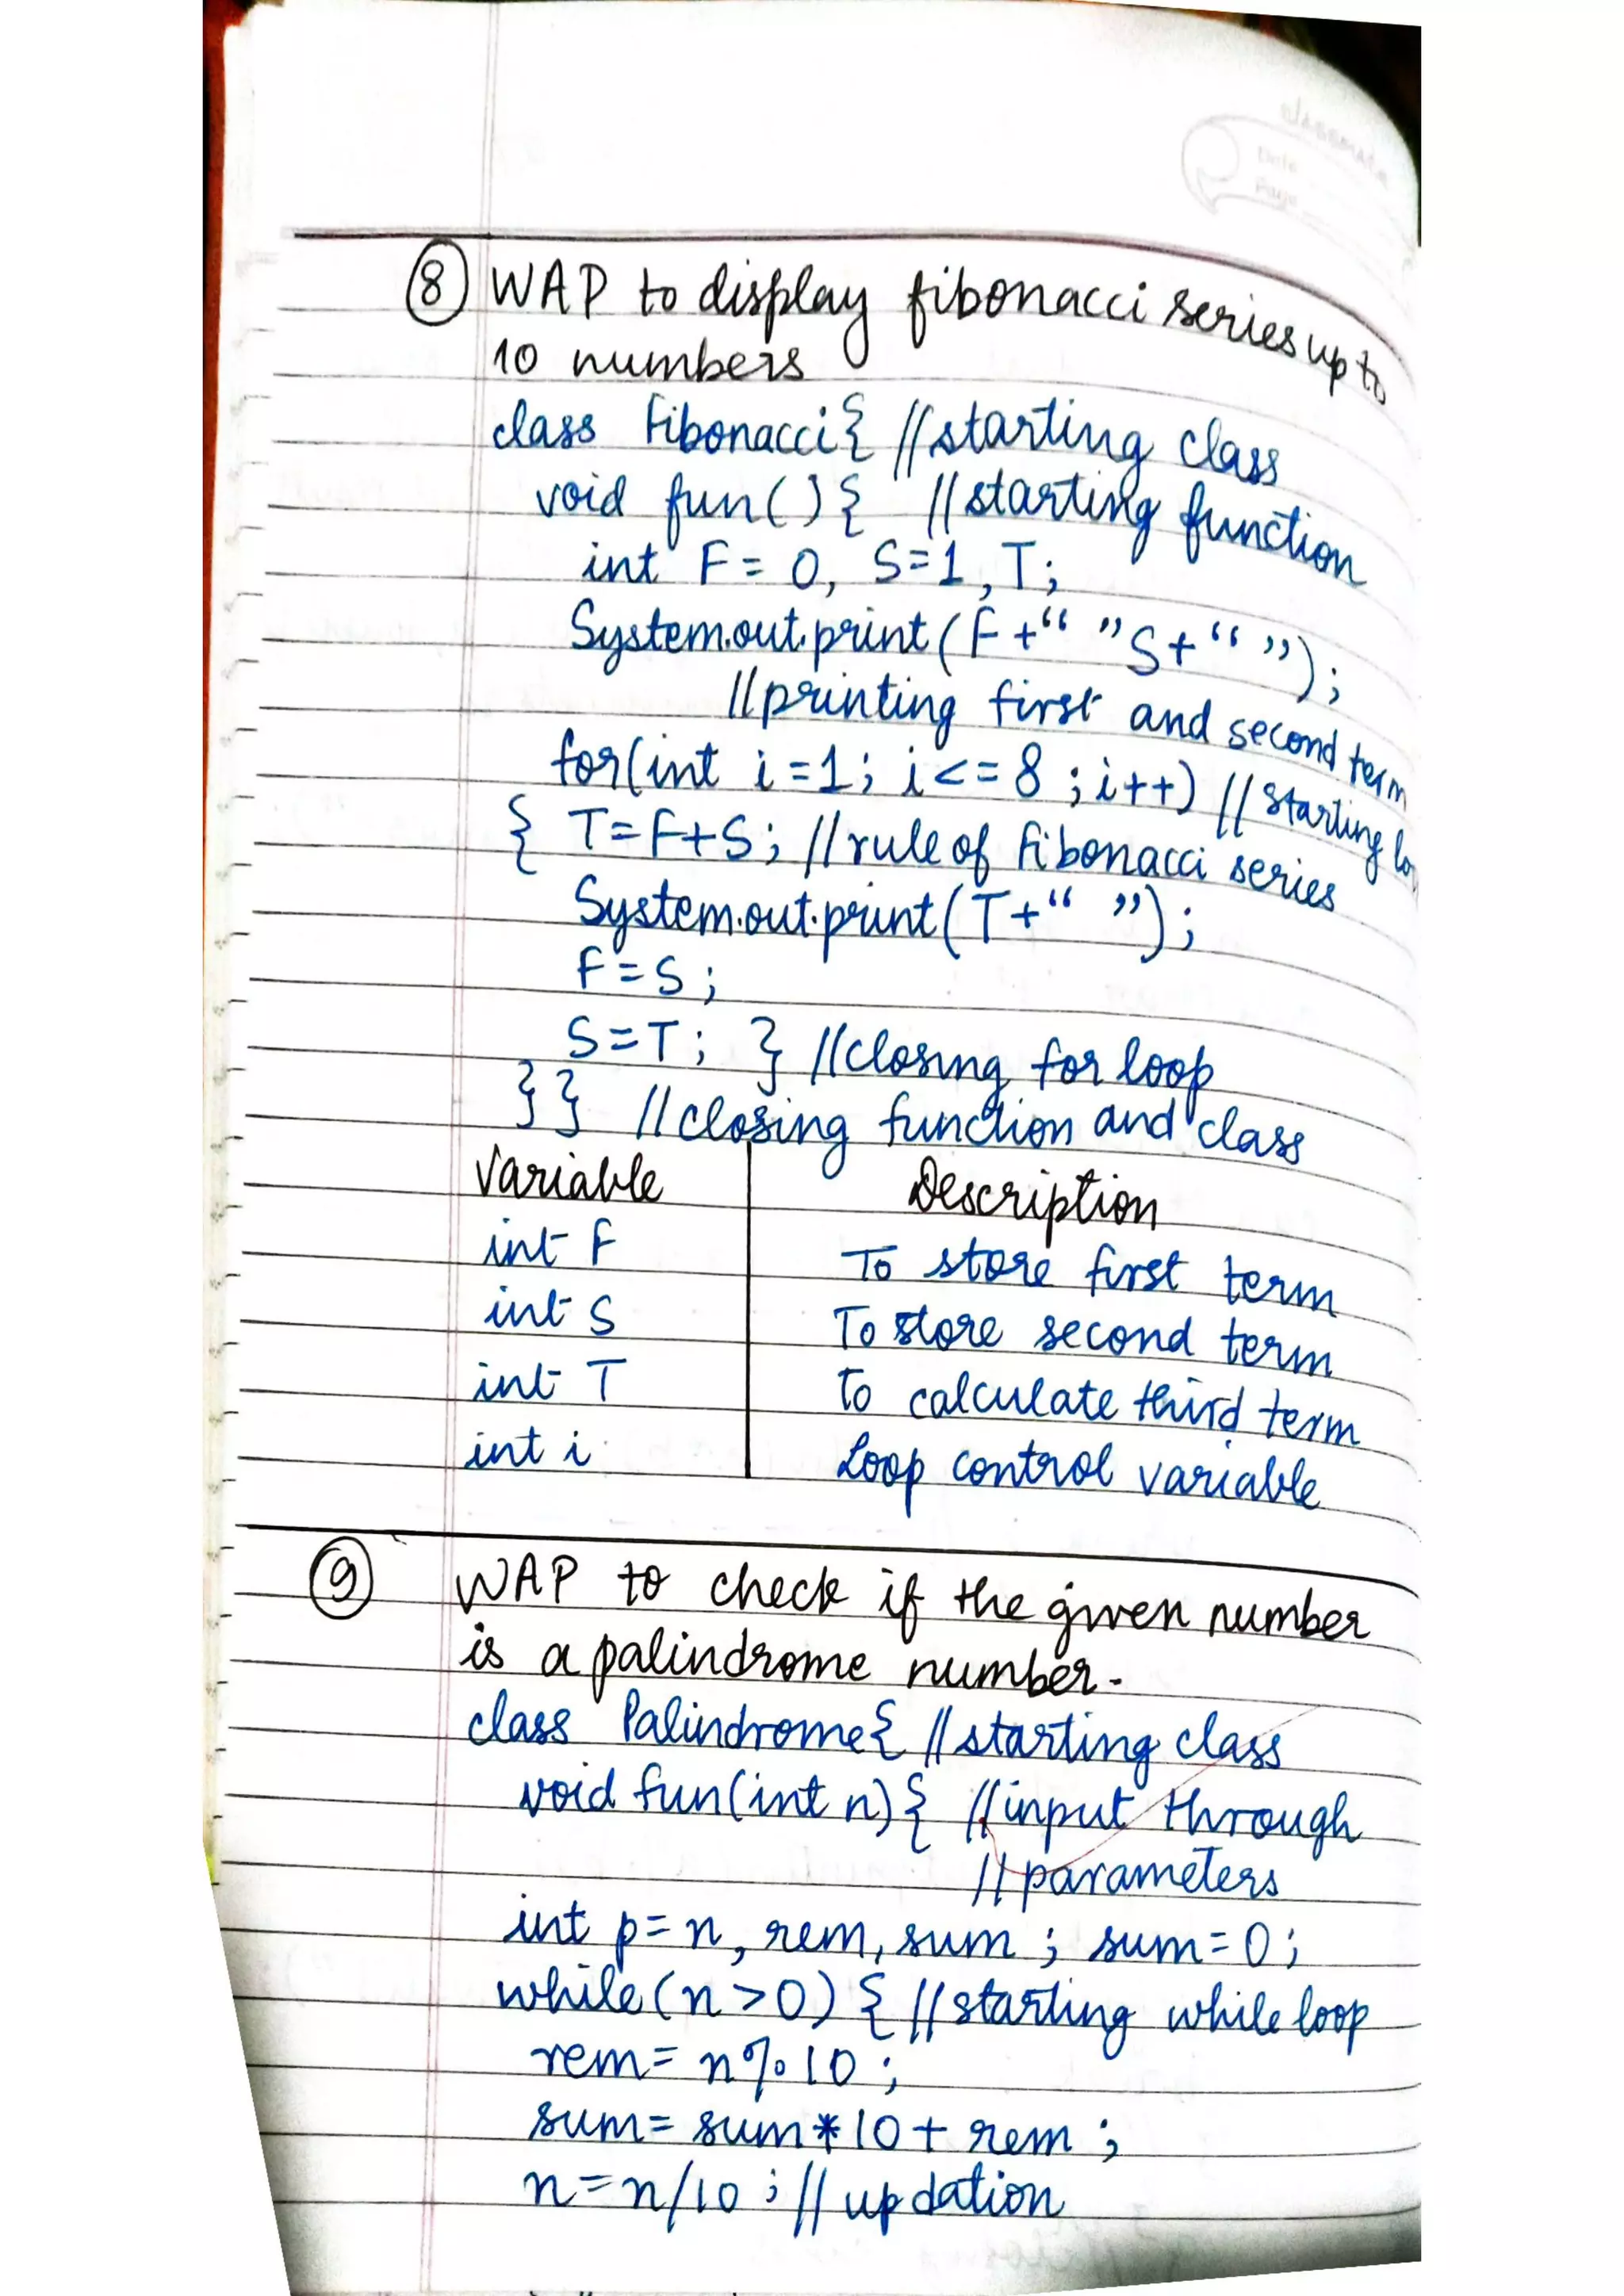 classmate
Date
Page
8 WAP to display fibonacci series up to
10 numbers
class Fibonacci{ //starting class
void fun(){ //starting function
int F=0, S=1,T;
System.out.print(F+" "S+" ");
//printing first and second term
for(int i=1; i<=8 ;i++) //starting lo
{ T=F+S; //rule of Fibonacci series
System.out.print(T+" ");
F=S;
S=T; } //closing for loop
}} //closing function and class
Variable Description
int F To store first term
int S To store second term
int T To calculate third term
int i Loop control variable
9 WAP to check if the given number
is a palindrome number.
class Palindrome{ //starting class
void fun(int n){ //input through
//parameters
int p=n, rem, sum ; sum=0;
while(n>0) { //starting while loop
rem=n%10;
sum=sum*10+rem;
n=n/10;//updation